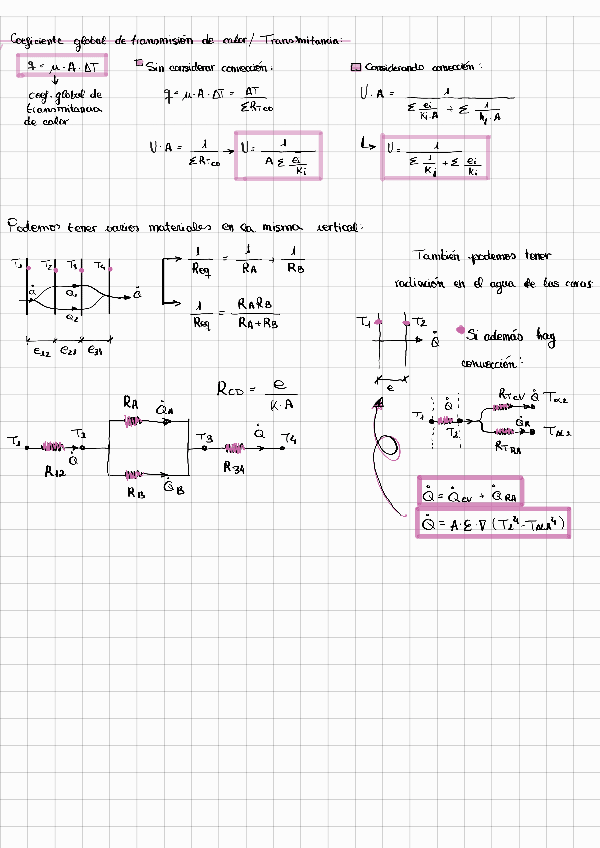 Coeficiente global de transmisión de calor / Transmitancia:
q = μ · A · ΔT
coef. global de
transmitancia
de calor
Sin considerar convección:
q = μ · A · ΔT = ΔT / ΣR_TCD
U · A = 1 / ΣR_TCD → U = 1 / (A Σ ei/Ki)
Considerando convección:
U · A = 1 / (Σ ei/(Ki·A) + Σ 1/(hi·A))
U = 1 / (Σ 1/Ki + Σ ei/Ki)
Podemos tener varios materiales en la misma vertical:
T1 T2 T3 T4
Q̇ Q1 Q̇
Q2
e12 e23 e34
1/Req = 1/RA + 1/RB
1/Req = RA RB / (RA + RB)
RCD = e / (K·A)
RA Q̇A
T1 T2 T3 Q̇ T4
R12 Q̇ R34
RB Q̇B
También podemos tener
radiación en el agua de las caras
T1 T2
Q̇
e
Si además hay
convección:
RTCV Q̇ T∞2
T1 Q̇ T2 Q̇R T∞2
RTRA
Q̇ = Q̇CV + Q̇RA